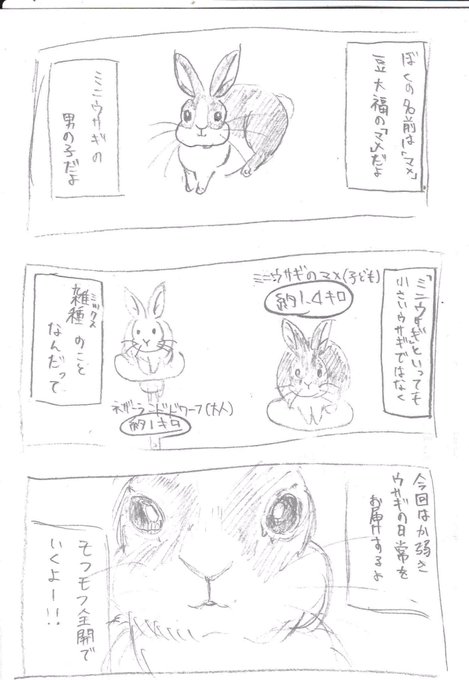 ぼくの名前は「マメ」
豆大福の「マメ」だよ
ミニウサギの
男の子だよ
「ミニウサギ」といっても
小さいウサギではなく
ミニウサギのマメ(子ども)
約1.4キロ
ネザーランドドワーフ(大人)
約1キロ
ミックス
雑種のこと
なんだって
今回はか弱き
ウサギの日常を
お届けするよ
モフモフ全開で
いくよー!!